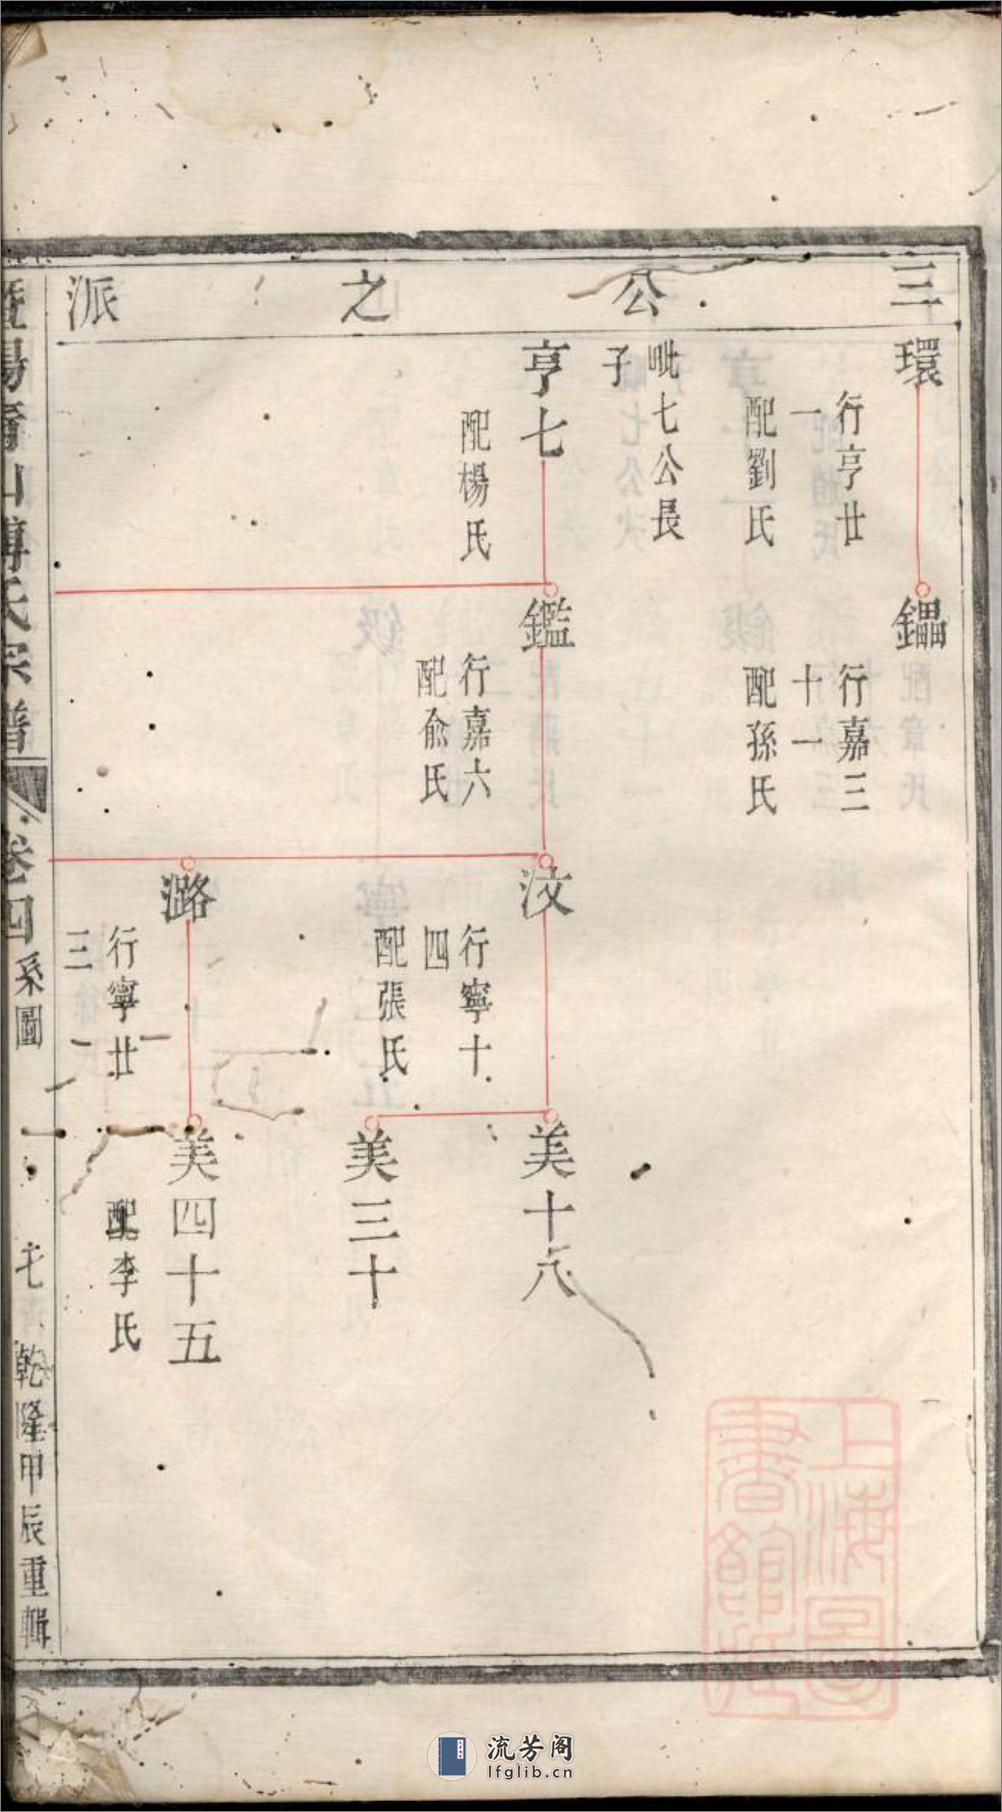 三公之派
環
行亨廿
一
配劉氏
鑘
行嘉三
十一
配孫氏
毗七公長
子
亨七
配楊氏
鑑
行嘉六
配俞氏
汶
行寧十
四
配張氏
美十八
美三十
潞
行寧廿
三
美四十五
配李氏
暨陽
山傅氏宗譜
卷四
系圖
乾隆甲辰重輯
上海圖
書館藏
流芳阁
lfglib.cn